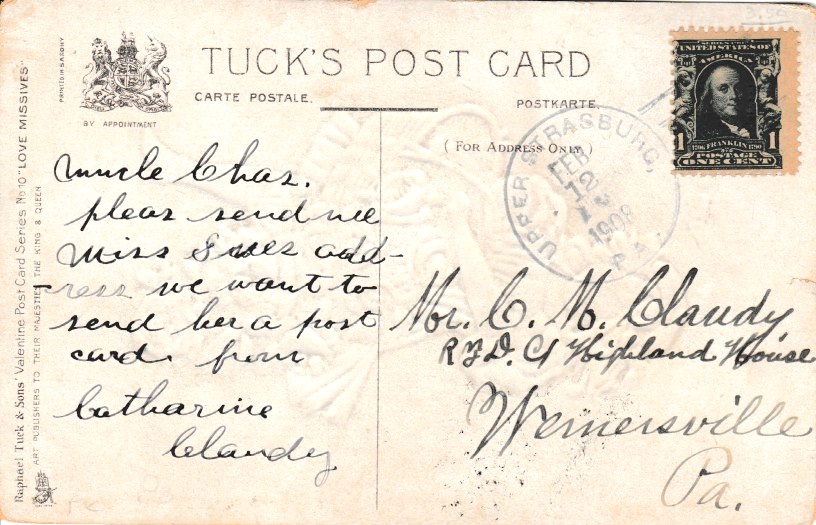 Raphael Tuck & Sons' Valentine Post Card Series No 10 "LOVE MISSIVES"
ART PUBLISHERS TO THEIR MAJESTIES THE KING & QUEEN
PRINTED IN SAXONY
BY APPOINTMENT
TUCK'S POST CARD
CARTE POSTALE.
POSTKARTE
(FOR ADDRESS ONLY)
UNITED STATES OF
AMERICA
1 1
FRANKLIN
POSTAGE
ONE CENT
UPPER STRASBURG,
FEB
12
1908
PA.
Uncle Chas.
pleas send me
Miss add-
ress we want to
send her a post
card. from
Catharine
Claudy
Mr. C. M. Claudy
R.F.D. Highland House
Wernersville
Pa.